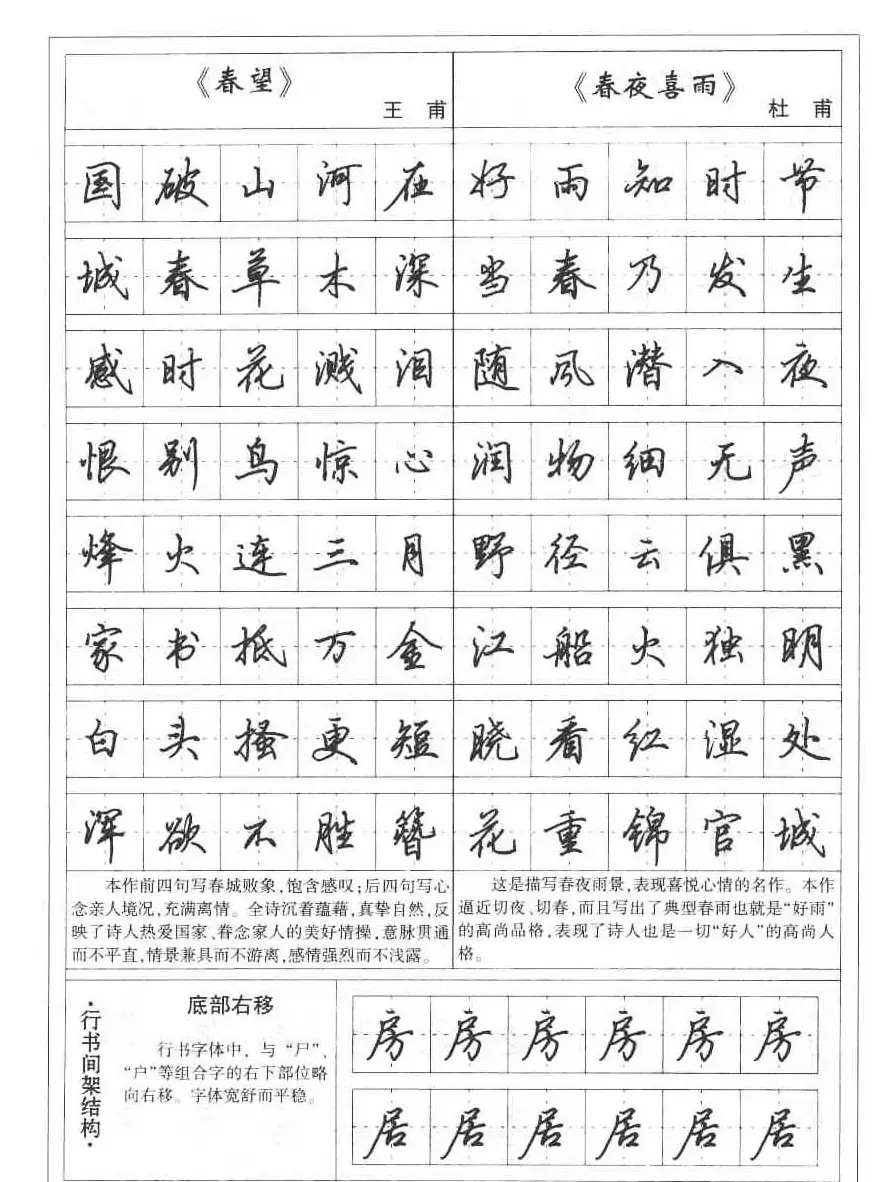 《春望》
王 甫
国破山河在
城春草木深
感时花溅泪
恨别鸟惊心
烽火连三月
家书抵万金
白头搔更短
浑欲不胜簪
本作前四句写春城败象,饱含感叹;后四句写心
念亲人境况,充满离情。全诗沉着蕴藉,真挚自然,反
映了诗人热爱国家、眷念家人的美好情操,意脉贯通
而不平直,情景兼具而不游离,感情强烈而不浅露。
《春夜喜雨》
杜 甫
好雨知时节
当春乃发生
随风潜入夜
润物细无声
野径云俱黑
江船火独明
晓看红湿处
花重锦官城
这是描写春夜雨景,表现喜悦心情的名作。本作
逼近切夜、切春,而且写出了典型春雨也就是“好雨”
的高尚品格,表现了诗人也是一切“好人”的高尚人
格。
·行书间架结构·
底部右移
行书字体中,与“尸”、
“户”等组合字的右下部位略
向右移。字体宽舒而平稳。
房房房房房房
居居居居居居